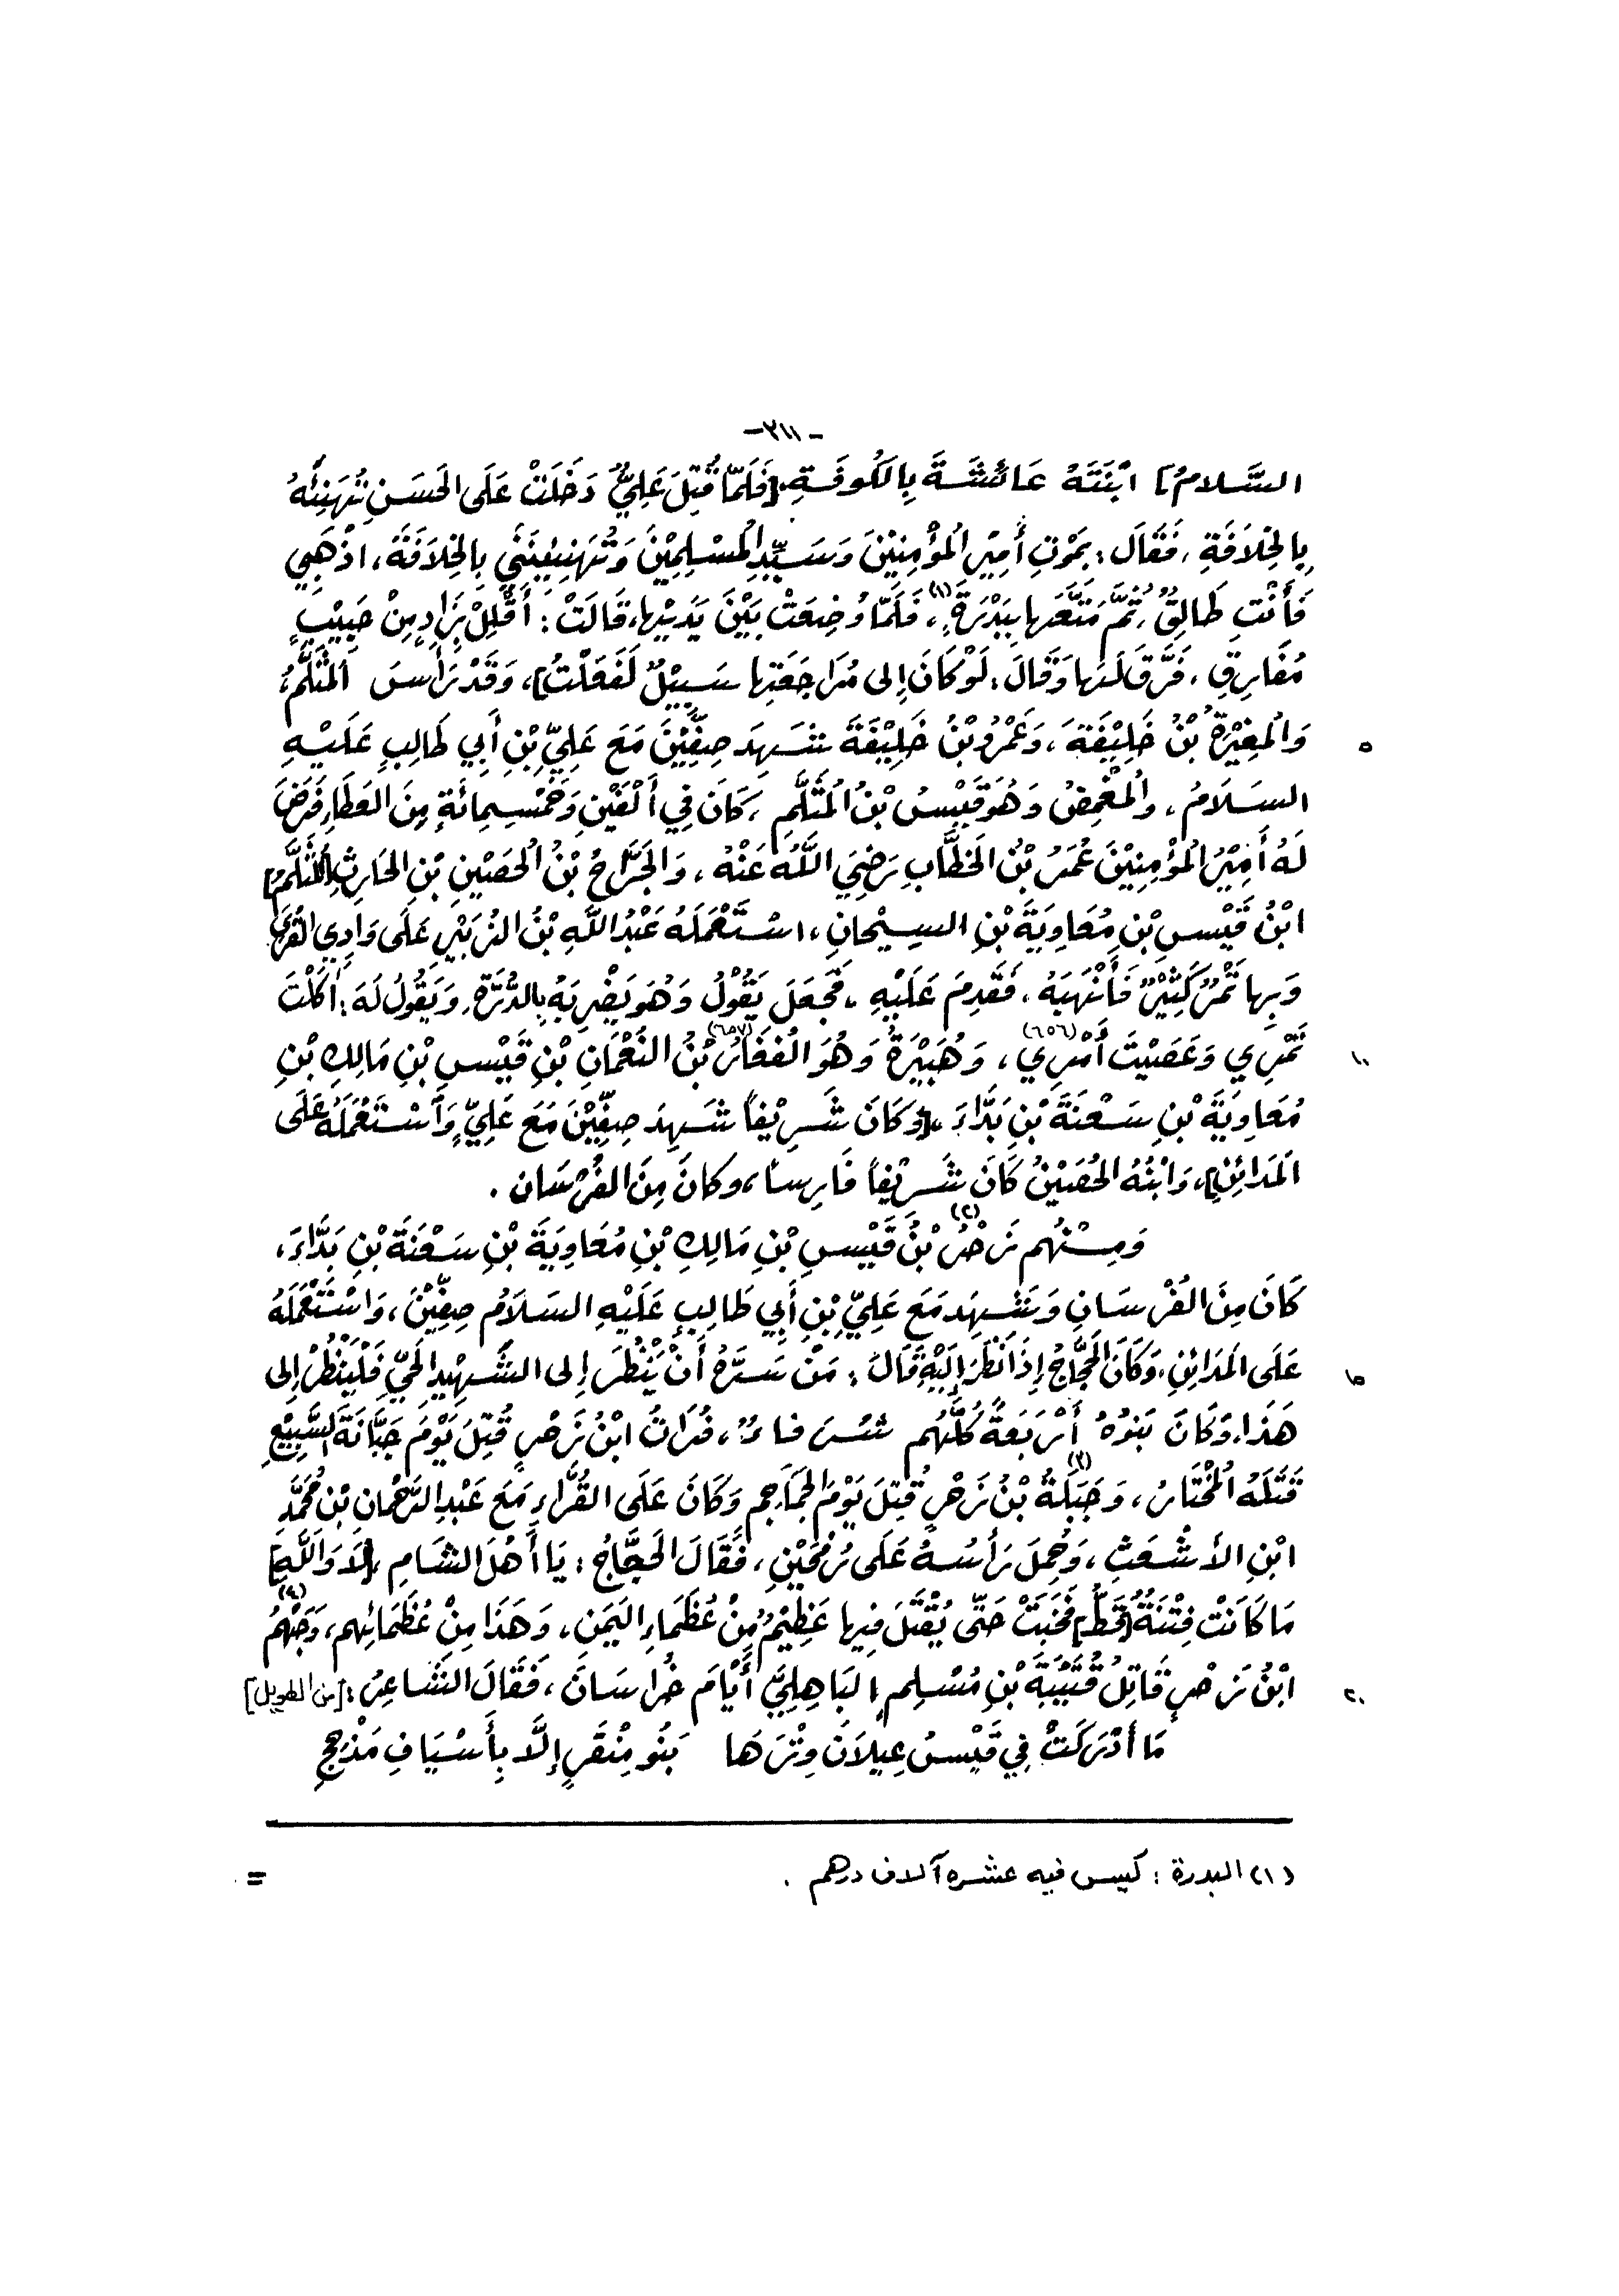 -٣١١-
السَّلامُ] ابْنَتَهُ عَائشَةَ بِالكُوفَةِ.[فَلَمّا قُتِلَ عَلِيٌّ دَخَلَتْ عَلَى الحَسَنِ تُهَنِئُهُ
بِالخِلاَفَةِ، فَقَالَ: بِمَوْتِ أَمِيْرِ المُؤْمِنِيْنَ وَسَيِّدِ المُسْلِمِيْنَ وَتُهَنِيئِينَنِي بِالخِلاَفَةِ، اذْهَبِي
فَأَنْتِ طَالِقٌ، ثُمَّ مَتَّعَها بِبَدْرَةٍ(١)، فَلَمّا وُضِعَتْ بَيْنَ يَدَيْها، قَالَتْ: أَقْلِلْ بِزَادٍ مِنْ حَبِيْبٍ
مُفَارِقٍ، فَرَّقَ لَهَا وَقَالَ: لَوْ كَانَ إِلى مُرَاجَعَتِها سَبِيْلٌ لَفَعَلْتُ]، وَقَدْ رَأَسَ المُثَلَّمُ،
وَالمُغِيْرَةُ بْنُ خَلِيْفَةَ، وَعَمْرُو بْنُ خَلِيْفَةَ شَهِدَ صِفِّيْنَ مَعَ عَلِيِّ بْنِ أَبِي طَالِبٍ عَلَيْهِ ٥
السَلَامُ، والمُغْمِضُ وَهُوَ قَيْسُ بْنُ المُثَلَّمِ، كَانَ فِي أَلْفَيْنِ وَخَمْسِمِائَةٍ مِنَ العَطَاءِ فَرَضَ
لَهُ أَمِيْرُ المُؤْمِنِيْنَ عُمَرُ بْنُ الخَطَّابِ رَضِيَ اللَّهُ عَنْهُ، وَالجَرَّاحُ بْنُ الحُصَيْنِ بْنِ الحَارِثِ[المُثَلَّمِ]
ابْنُ قَيْسِ بْنِ مُعَاوِيَةَ بْنِ السِيْحانِ، اسْتَعْمَلَهُ عَبْدُ اللَّهِ بْنُ الزُبَيْرِ عَلَى وَادِي القُرَى
وَبِها تَمْرٌ كَثِيْرٌ فَأَنْهَبَهُ، فَقَدِمَ عَلَيْهِ، فَجَعَلَ يَقُوْلُ وَهُوَ يَضْرِبَهُ بِالدُّرَّةِ، وَيَقُولُ لَهُ: أَكَلْتَ
تَمْرِي وَعَصَيْتَ أَمْرِي(٦٥٦)، وَهُبَيْرَةُ وَهُوَ الغفَارُ(٦٥٧) بْنُ النُعْمَانِ بْنِ قَيْسِ بْنِ مَالِكِ بْنِ ١٠
مُعَاوِيَةَ بْنِ سَعْنَةَ بْنِ بَدَّاءَ،[وَكَانَ شَرِيْفاً شَهِدَ صِفِّيْنَ مَعَ عَلِيٍّ وَاسْتَعْمَلَهُ عَلَى
المَدَائِنِ]، وَابْنُهُ الحُصَيْنُ كَانَ شَرِيْفاً فَارِساً، وكانَ مِنَ الفُرْسَان.
وَمِنْهُم زَحْرُ(٢) بْنُ قَيْسِ بْنِ مَالِكِ بْنِ مُعَاوِيَةَ بْنِ سَعْنَةَ بْنِ بَدَّاءَ،
كَانَ مِنَ الفُرْسَانِ وَشَهِدَ مَعَ عَلِيِّ بْنِ أَبِي طَالِبٍ عَلَيْهِ السَلَامُ صِفِّيْنَ، وَاسْتَعْمَلَهُ
عَلَى المَدَائِنِ، وَكَانَ الحَجَّاجُ إِذَا نَظَرَ إِلَيْهِ قَالَ: مَنْ سَرَّهُ أَنْ يَنْظُرَ إِلى الشَهِيْدِ الحَيِّ فَلْيَنْظُرْ إِلى ١٥
هَذَا. وَكَانَ بَنُوْهُ أَرْبَعَةً كُلُّهُم شُرَفاءُ، فُرَاتُ ابْنُ زَحْرٍ قُتِلَ يَوْمَ جَبَّانَةَ السَّبِيْعِ
قَتَلَهُ المُخْتَارُ، وَجَبَلَةُ(٣) بْنُ زَحْرٍ قُتِلَ يَوْمَ الجَمَاجِمِ وَكَانَ عَلَى القُرَّاءِ مَعَ عَبْدِ الرَّحْمانِ بْنِ مُحَمَّدِ
ابْنِ الأَشْعَثِ، وَحُمِلَ رَأْسُهُ عَلَى رُمْحَيْنِ، فَقَالَ الحَجَّاجُ: يَا أَهْلَ الشَامِ،[لَا وَاللَّهِ]
مَا كَانَتْ فِتْنَةٌ[قَطُّ] فَخَبَتْ حَتّى يُقْتَلَ فِيها عَظِيْمٌ مِنْ عُظَمَاءِ اليَمَنِ، وَهَذَا مِنْ عُظَمَائِهِم، وَجَهْمُ(٤)
ابْنُ زَحْرٍ قَاتِلُ قُتَيْبَةَ بْنِ مُسْلِمٍ البَاهِلِيِّ أَيَّامَ خُراسَانَ، فَقَالَ الشَاعِرُ:[من الطويل] ٢٠
مَا أَدْرَكَتْ فِي قَيْسُ عِيلاَنَ وِتْرَهَا بَنُو مِنْقَرٍ إِلَّا بِأَسْيَافِ مَذْحِجِ
(١) البدرة: كيس فيه عشره آلاف درهم. =